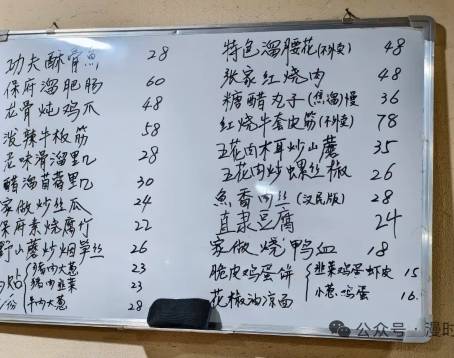 功夫酥骨魚 28
保府溜肥肠 60
花骨炖鸡爪 48
泼辣牛板筋 58
老味滑溜里几 28
醋溜苜蓿里几 30
家做炒丝瓜 24
保府素烧腐竹 22
野山蘑炒烟笋丝 26
猪肉大葱 23
猪肉韭菜 23
牛肉大葱 28
特色溜腰花(不外卖) 48
张家红烧肉 48
糖醋丸子(焦溜)慢 36
红烧牛套皮筋(不外卖) 78
五花肉木耳炒山蘑 35
五花肉炒螺丝椒 26
魚香肉丝(汉民版) 28
直隶豆腐 24
家做烧鸭血 18
脆皮鸡蛋饼 韭菜鸡蛋虾皮 15
小葱鸡蛋 16
花椒油凉面
公众号·漫时